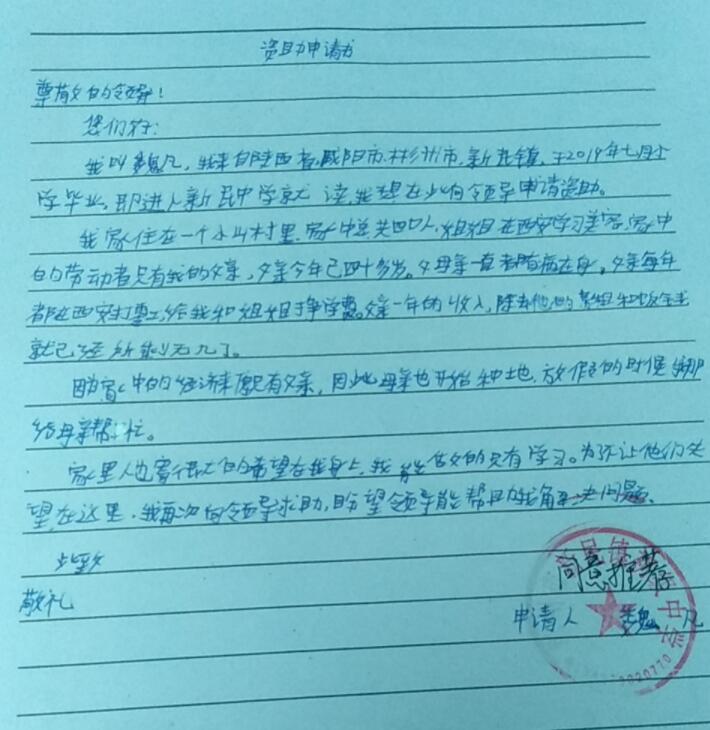 资助申请书
尊敬的领导！
您们好：
我叫魏凡，我来自陕西省，咸阳市，彬州市，新民镇，于2019年七月小
学毕业，即进入新民中学就读，我想在此向领导申请资助。
我家住在一个小山村里，家中总共四口人，姐姐在西安学习美容，家中
的劳动者只有我的父亲，父亲今年已四十多岁。父母亲一直都有病在身，父亲每年
都在西安打工，给我和姐姐挣学费。父亲一年的收入，除去他的房租和饭钱
就已经所剩无几了。
因为家中的经济来源只有父亲，因此母亲也开始种地，放假的时候
给母亲帮忙。
家里人也寄很大的希望在我身上，我能做的只有学习。为不让他们失
望，在这里，我再次向领导求助，盼望领导能帮助我解决问题。
此致
敬礼
同意推荐
申请人 魏凡